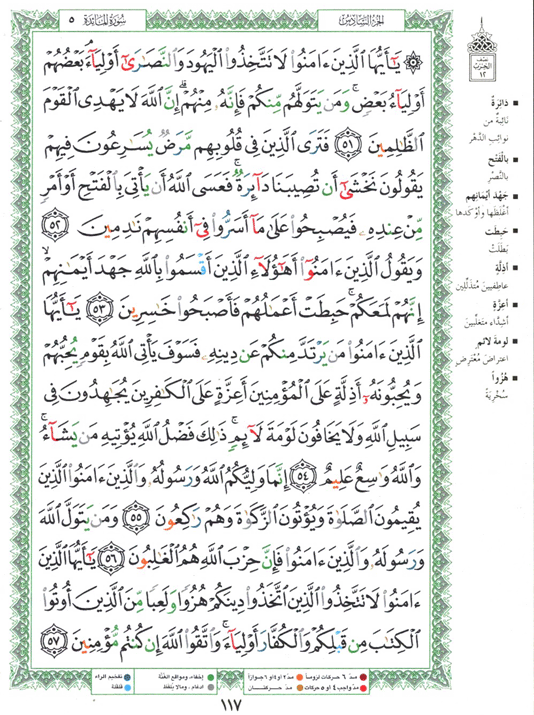 سُورَةُ المَائِدَة ٥
الجُزءُ السَّادِسُ
نِصْف
الحِزْب
١٢
۞ يَٰٓأَيُّهَا ٱلَّذِينَ ءَامَنُوا۟ لَا تَتَّخِذُوا۟ ٱلْيَهُودَ وَٱلنَّصَٰرَىٰٓ أَوْلِيَآءَ ۘ بَعْضُهُمْ
أَوْلِيَآءُ بَعْضٍ ۚ وَمَن يَتَوَلَّهُم مِّنكُمْ فَإِنَّهُۥ مِنْهُمْ ۗ إِنَّ ٱللَّهَ لَا يَهْدِى ٱلْقَوْمَ
ٱلظَّٰلِمِينَ ٥١ فَتَرَى ٱلَّذِينَ فِى قُلُوبِهِم مَّرَضٌ يُسَٰرِعُونَ فِيهِمْ
يَقُولُونَ نَخْشَىٰٓ أَن تُصِيبَنَا دَآئِرَةٌ ۚ فَعَسَى ٱللَّهُ أَن يَأْتِىَ بِٱلْفَتْحِ أَوْ أَمْرٍ
مِّنْ عِندِهِۦ فَيُصْبِحُوا۟ عَلَىٰ مَآ أَسَرُّوا۟ فِىٓ أَنفُسِهِمْ نَٰدِمِينَ ٥٢
وَيَقُولُ ٱلَّذِينَ ءَامَنُوٓا۟ أَهَٰٓؤُلَآءِ ٱلَّذِينَ أَقْسَمُوا۟ بِٱللَّهِ جَهْدَ أَيْمَٰنِهِمْ ۙ
إِنَّهُمْ لَمَعَكُمْ ۚ حَبِطَتْ أَعْمَٰلُهُمْ فَأَصْبَحُوا۟ خَٰسِرِينَ ٥٣ يَٰٓأَيُّهَا
ٱلَّذِينَ ءَامَنُوا۟ مَن يَرْتَدَّ مِنكُمْ عَن دِينِهِۦ فَسَوْفَ يَأْتِى ٱللَّهُ بِقَوْمٍ يُحِبُّهُمْ
وَيُحِبُّونَهُۥٓ أَذِلَّةٍ عَلَى ٱلْمُؤْمِنِينَ أَعِزَّةٍ عَلَى ٱلْكَٰفِرِينَ يُجَٰهِدُونَ فِى
سَبِيلِ ٱللَّهِ وَلَا يَخَافُونَ لَوْمَةَ لَآئِمٍ ۚ ذَٰلِكَ فَضْلُ ٱللَّهِ يُؤْتِيهِ مَن يَشَآءُ ۚ
وَٱللَّهُ وَٰسِعٌ عَلِيمٌ ٥٤ إِنَّمَا وَلِيُّكُمُ ٱللَّهُ وَرَسُولُهُۥ وَٱلَّذِينَ ءَامَنُوا۟ ٱلَّذِينَ
يُقِيمُونَ ٱلصَّلَوٰةَ وَيُؤْتُونَ ٱلزَّكَوٰةَ وَهُمْ رَٰكِعُونَ ٥٥ وَمَن يَتَوَلَّ ٱللَّهَ
وَرَسُولَهُۥ وَٱلَّذِينَ ءَامَنُوا۟ فَإِنَّ حِزْبَ ٱللَّهِ هُمُ ٱلْغَٰلِبُونَ ٥٦ يَٰٓأَيُّهَا ٱلَّذِينَ
ءَامَنُوا۟ لَا تَتَّخِذُوا۟ ٱلَّذِينَ ٱتَّخَذُوا۟ دِينَكُمْ هُزُوًا وَلَعِبًا مِّنَ ٱلَّذِينَ أُوتُوا۟
ٱلْكِتَٰبَ مِن قَبْلِكُمْ وَٱلْكُفَّارَ أَوْلِيَآءَ ۚ وَٱتَّقُوا۟ ٱللَّهَ إِن كُنتُم مُّؤْمِنِينَ ٥٧
دَائِرَةٌ
نائِبةٌ من
نوائِبِ الدَّهْرِ
بالْفَتْحِ
بالنَّصْرِ
جَهْدَ أيْمَانِهِم
أغْلَظَها وأوْكَدها
حَبِطَت
بَطَلَتْ
أذِلَّةٍ
عاطِفِينَ مُتَذَلِّلِين
أعِزَّةٍ
أشِدَّاء مُتَغَلِّبينَ
لَوْمَةَ لائمٍ
اعتراضَ مُعْتَرِضٍ
هُزُواً
سُخْرِيَةً
مدّ ٦ حركات لزوماً
مدّ ٢ أو ٤ أو ٦ جوازاً
مدّ واجب ٤ أو ٥ حركات
مدّ حركتان
إخفاء، ومواقع الغنّة
إدغام، وما لا يُلفظ
تفخيم الراء
قلقلة
١١٧